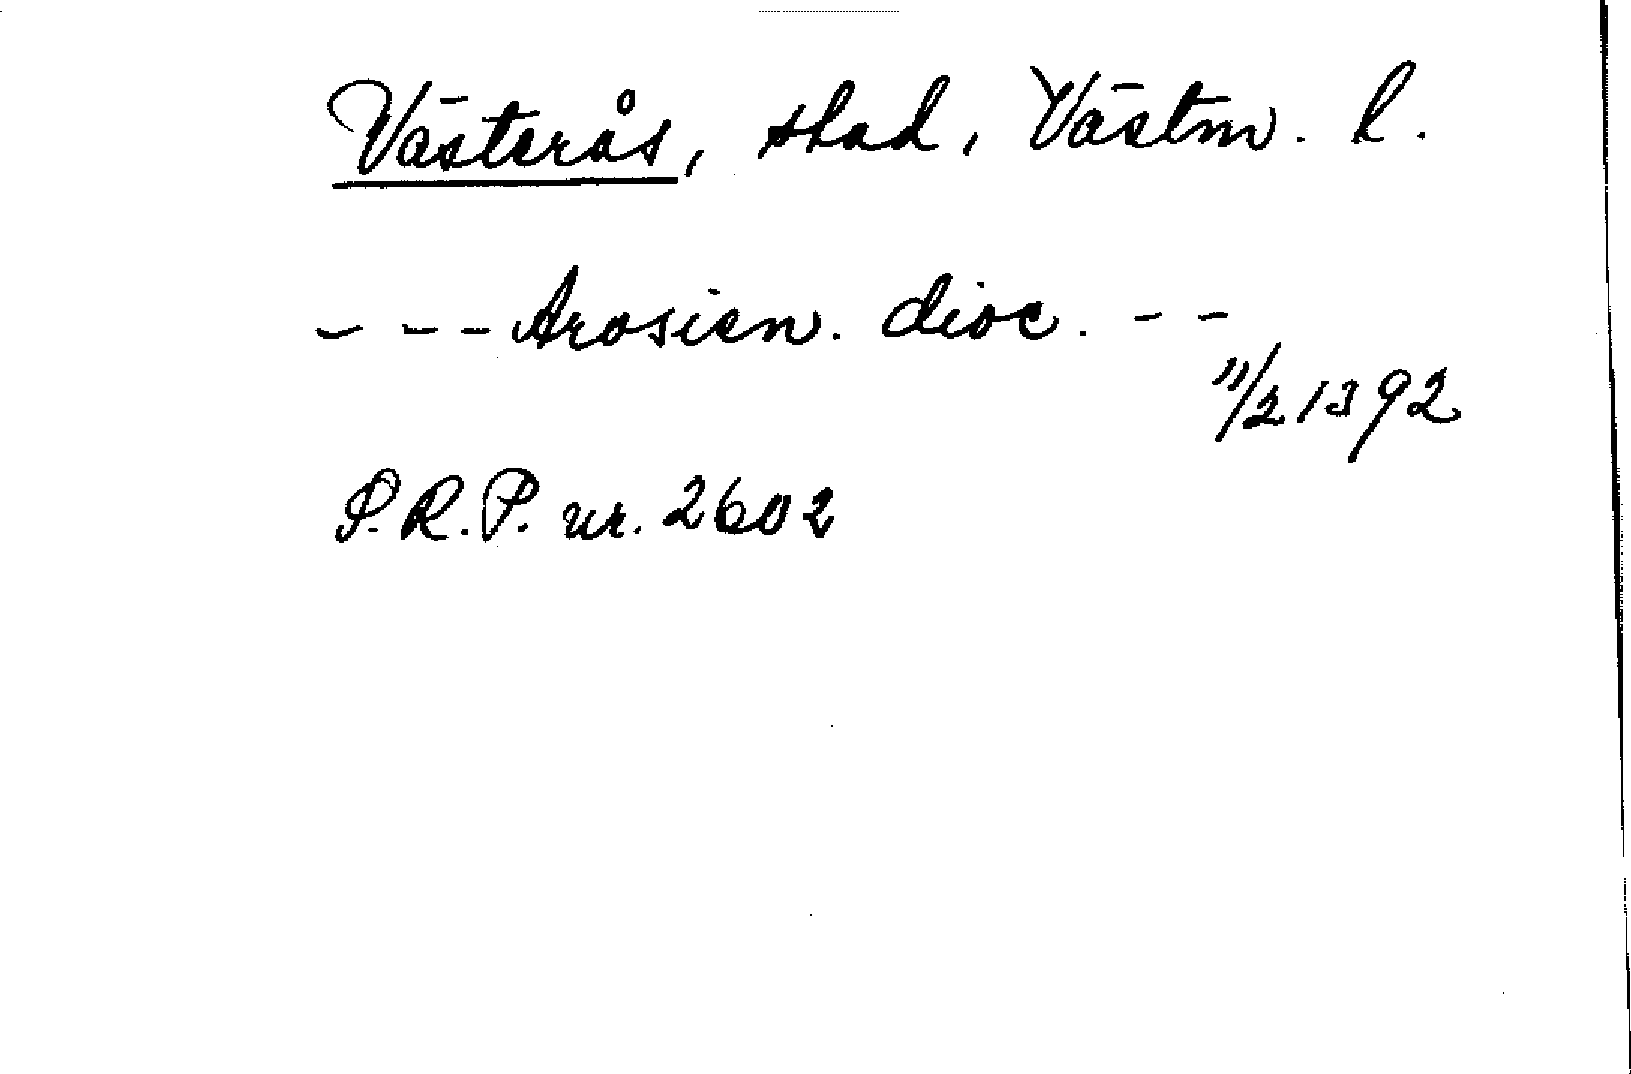 Västerås, stad, Västm. l.
--- Arosien. dioc. --
11/2 1392
S.R.P. nr. 2602